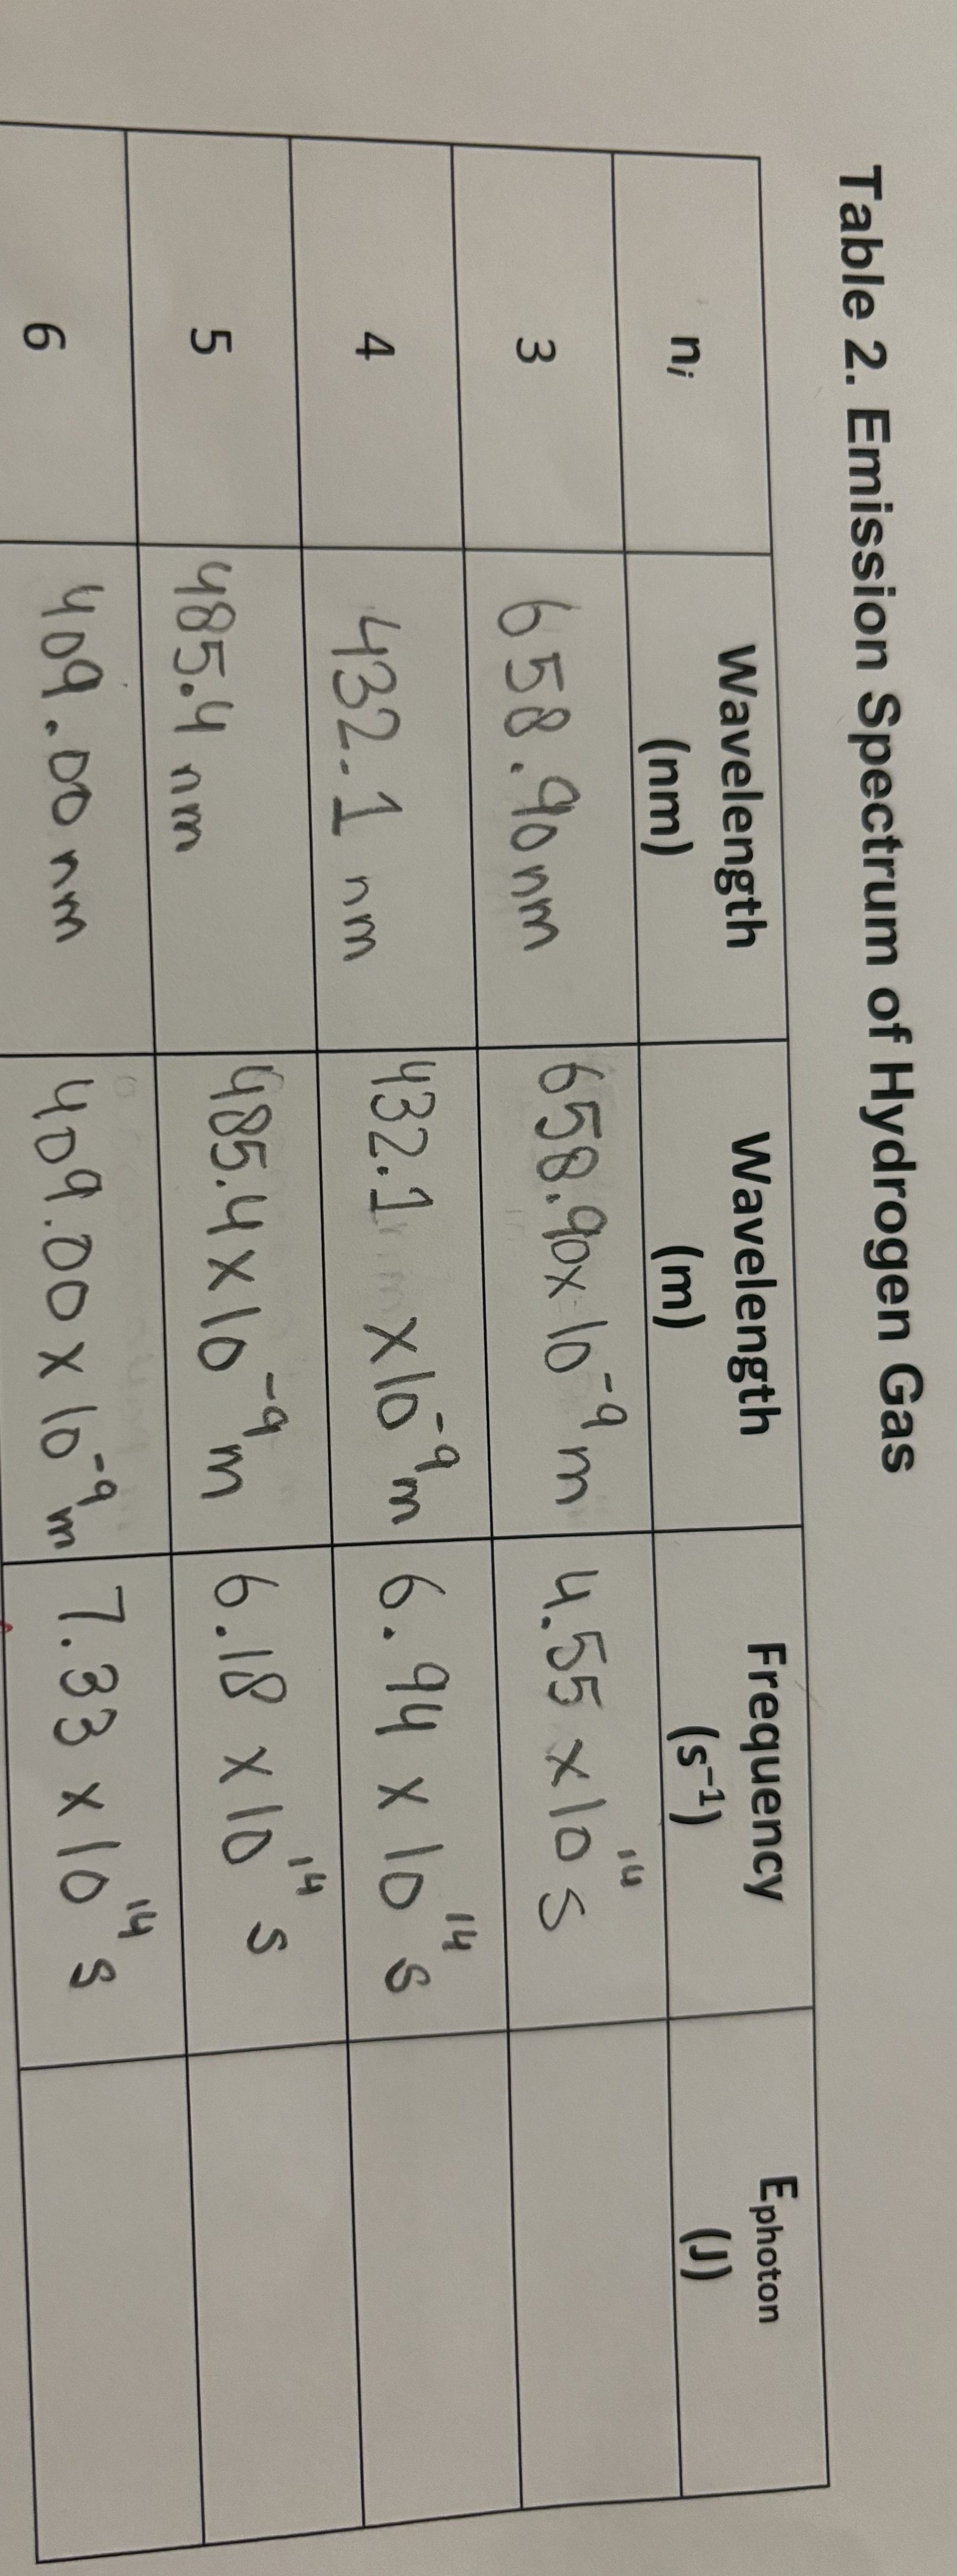 Table 2. Emission Spectrum of Hydrogen Gas
nᵢ Wavelength (nm) Wavelength (m) Frequency (s⁻¹) Ephoton (J)
3 658.90 nm 658.90 x 10⁻⁹ m 4.55 x 10¹⁴ s
4 432.1 nm 432.1 x 10⁻⁹ m 6.94 x 10¹⁴ s
5 485.4 nm 485.4 x 10⁻⁹ m 6.18 x 10¹⁴ s
6 409.00 nm 409.00 x 10⁻⁹ m 7.33 x 10¹⁴ s